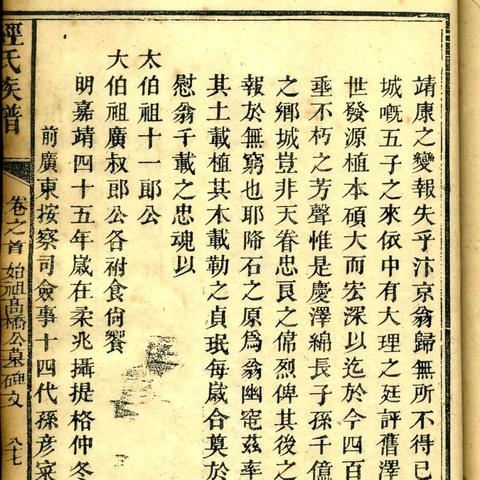 靖康之變報失乎汴京翁歸無所不得已
城嘅五子之來依中有大理之廷評舊澤
世發源植本碩大而宏深以迄於今四百
垂不朽之芳聲惟是慶澤綿長子孫千億
之鄉城豈非天眷忠良之偹烈俾其後之
報於無窮也耶降石之原爲翁幽窀茲率
其土載植其木載勒之貞珉每歲合奠於
慰翁千載之忠魂以
太伯祖十一郎公
大伯祖廣叔郎公各祔食尙饗
明嘉靖四十五年歲在柔兆攝提格仲冬
前廣東按察司僉事十四代孫彥寀
經氏族譜
卷之首 始祖高橋公墓碑文 八十七